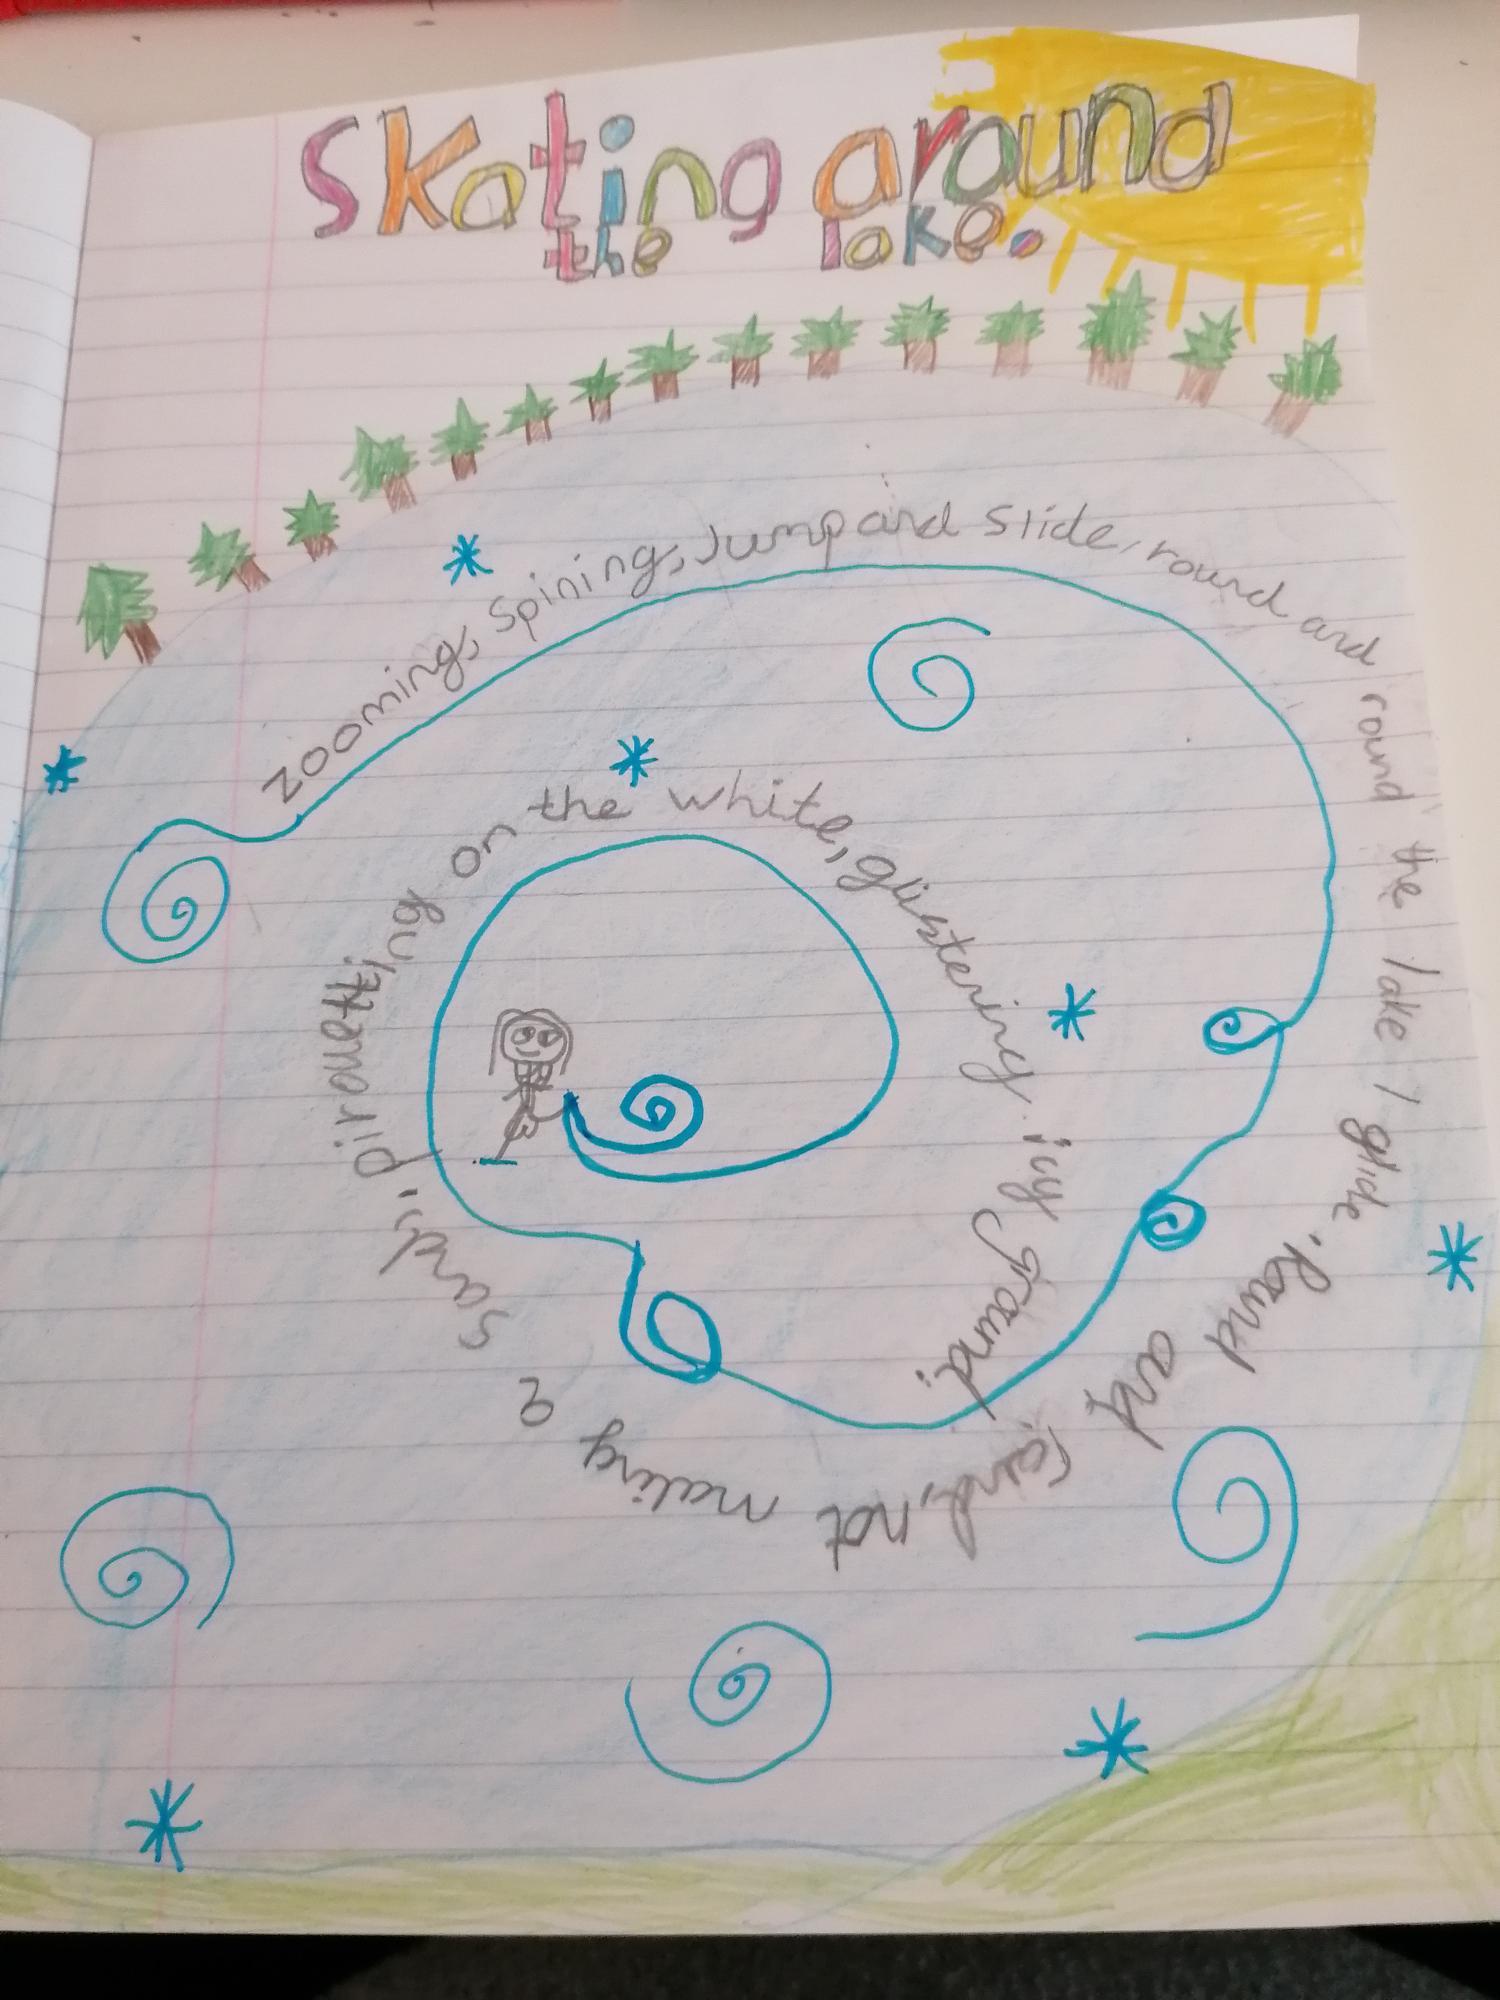 Skating around
the lake.
zooming, spining, Jump and slide, round and round the lake I glide. Round and round, not making a sound, pirouetting on the white, glistening icy ground.